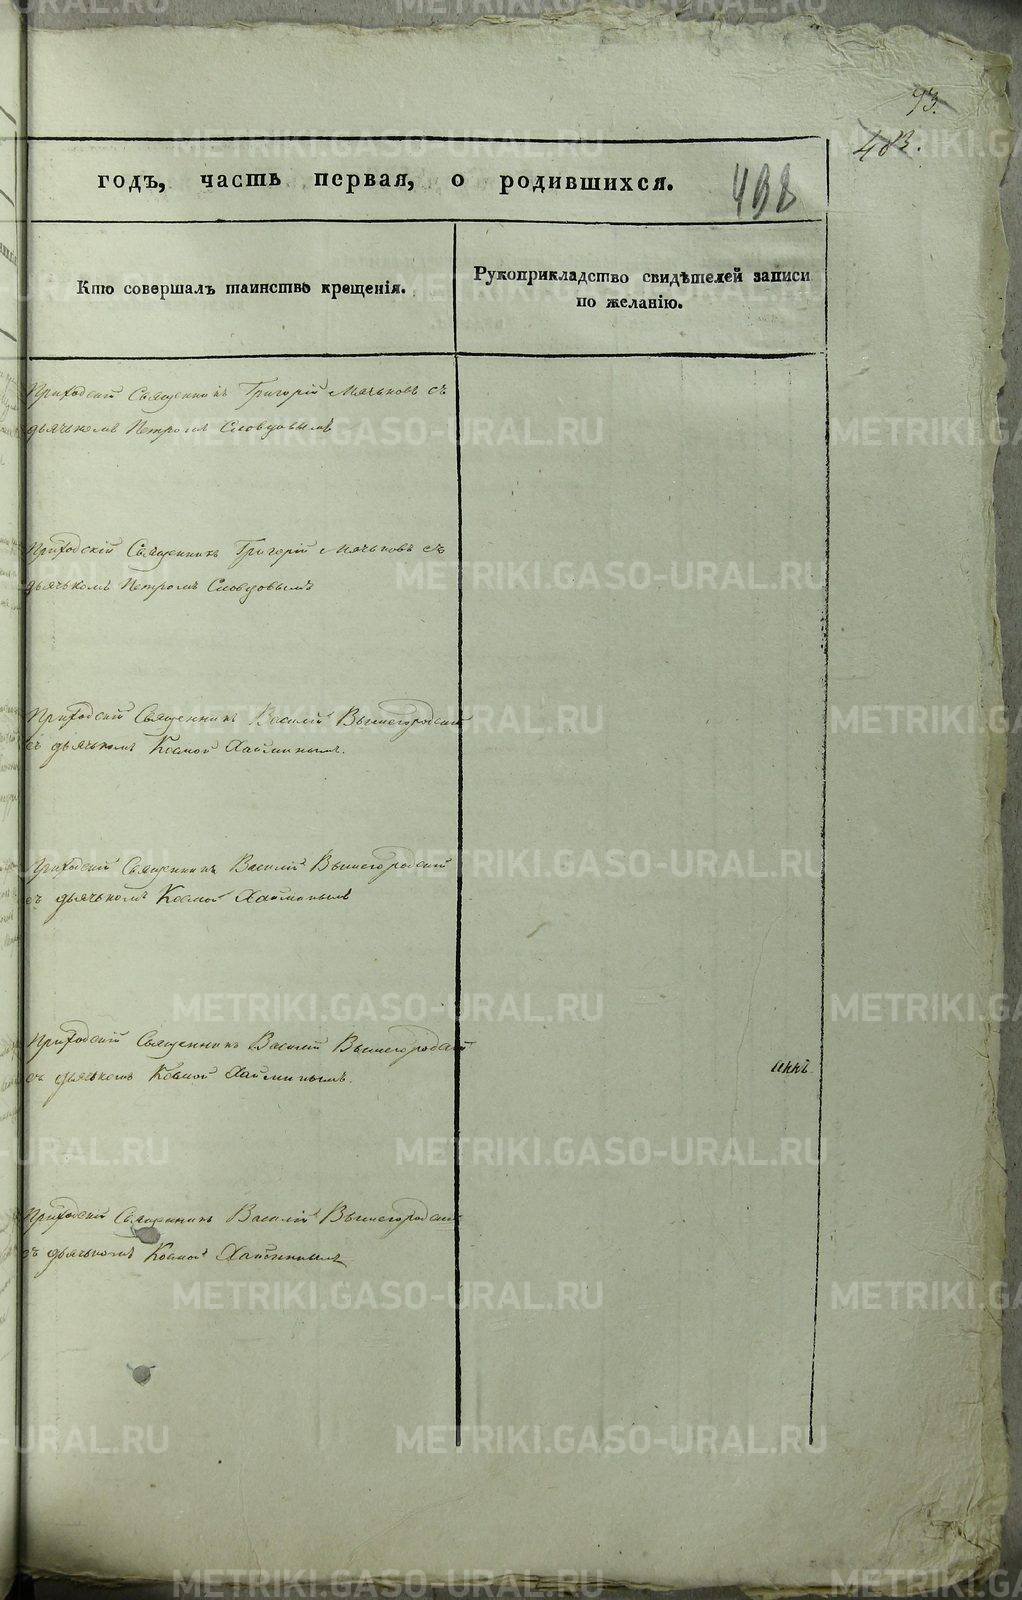 93.
483.
годъ, часть первая, о родившихся.
498
Кто совершалъ таинство крещенія.
Рукоприкладство свидѣтелей записи
по желанію.
Приходскій Священникъ Григорій Мячьковъ съ
дьячькомъ Петромъ Словцовымъ
Приходскій Священникъ Григорій Мячьковъ съ
дьячькомъ Петромъ Словцовымъ
Приходскій Священникъ Василій Вышегородскій
съ дьячькомъ Козмой
Приходскій Священникъ Василій Вышегородскій
съ дьячькомъ Козмой
Приходскій Священникъ Василій Вышегородскій
съ дьячькомъ Козмой
Приходскій Священникъ Василій Вышегородскій
съ дьячькомъ Козмой
METRIKI.GASO-URAL.RU